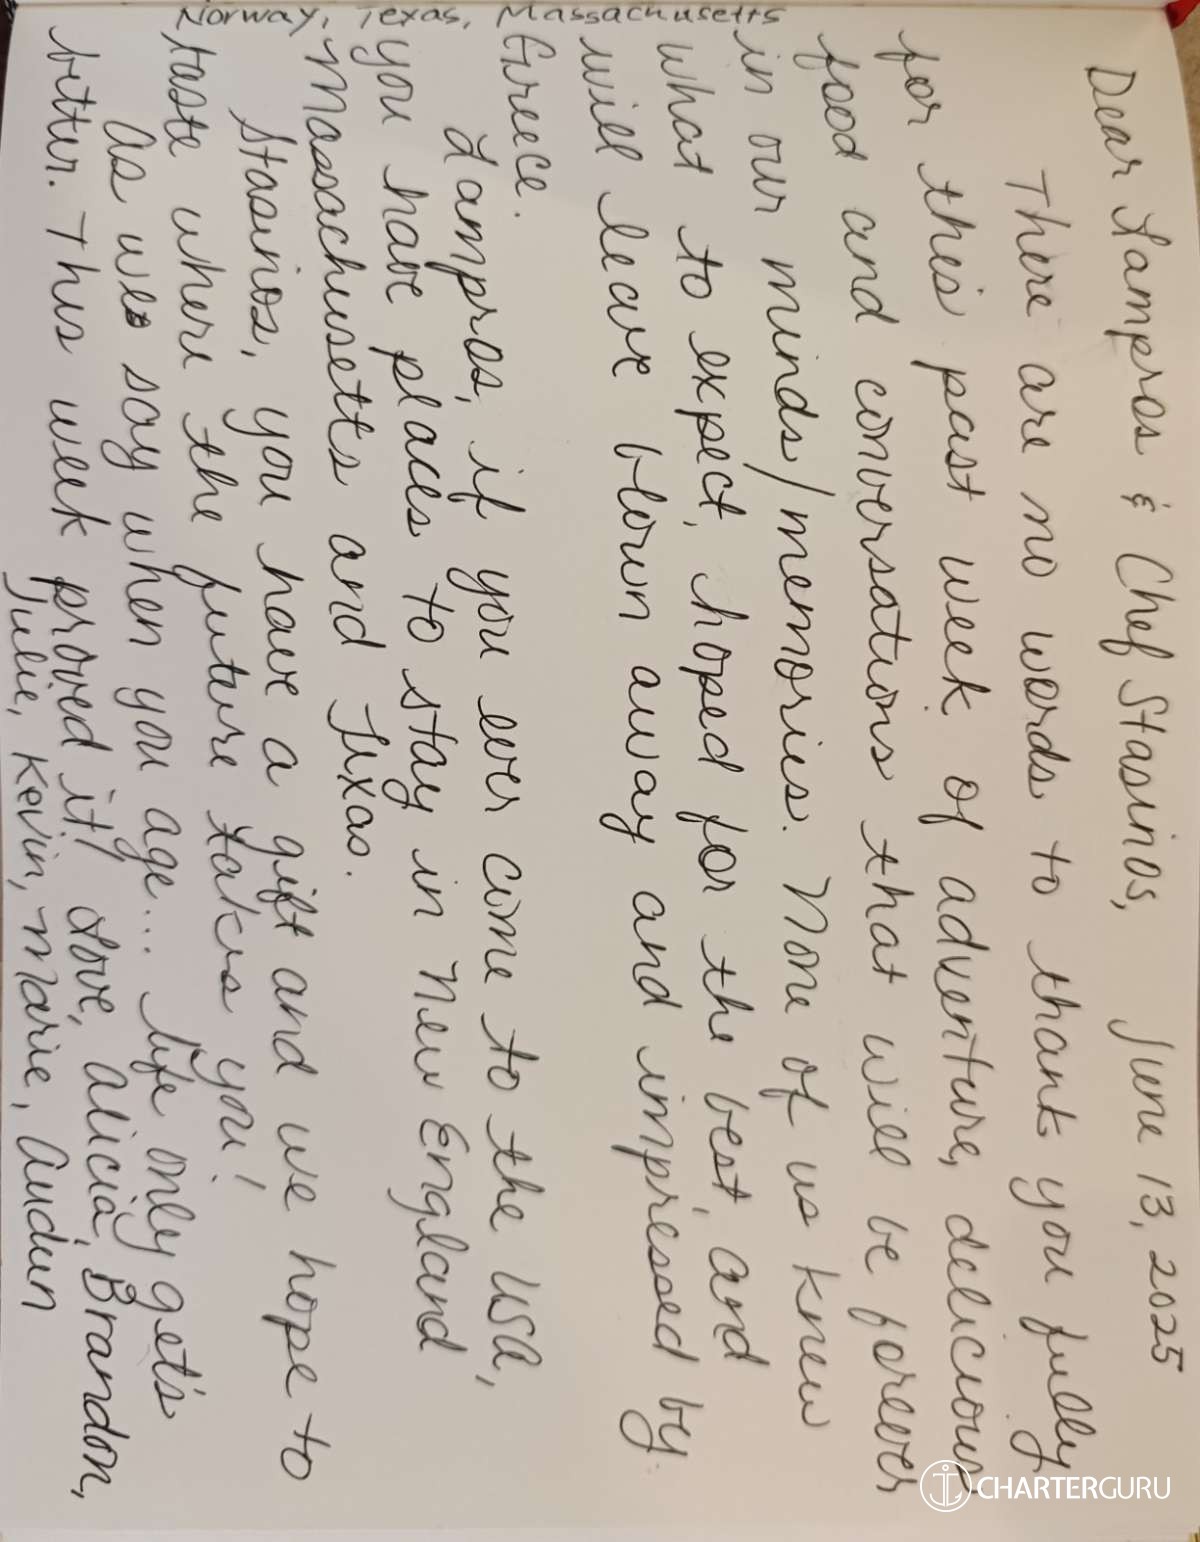 Dear Lampros & Chef Stasinos, June 13, 2025
There are no words to thank you fully
for this past week of adventure, delicious
food and conversations that will be forever
in our minds/memories. None of us knew
what to expect, hoped for the best, and
will leave blown away and impressed by
Greece.
Lampros, if you ever come to the USA,
you have places to stay in New England
Massachusetts and Texas.
Stasinos, you have a gift and we hope to
taste where the future takes you!
As we say when you age... life only gets
better. This week proved it! Love, Alicia, Brandon,
Julie, Kevin, Marie, Audun
Norway, Texas, Massachusetts
CHARTERGURU